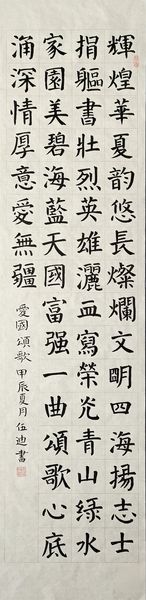 輝煌華夏韵悠長燦爛文明四海揚志士
捐軀書壯烈英雄灑血寫榮光青山綠水
家園美碧海藍天國富强一曲頌歌心底
涌深情厚意愛無疆
愛國頌歌甲辰夏月伍迪書